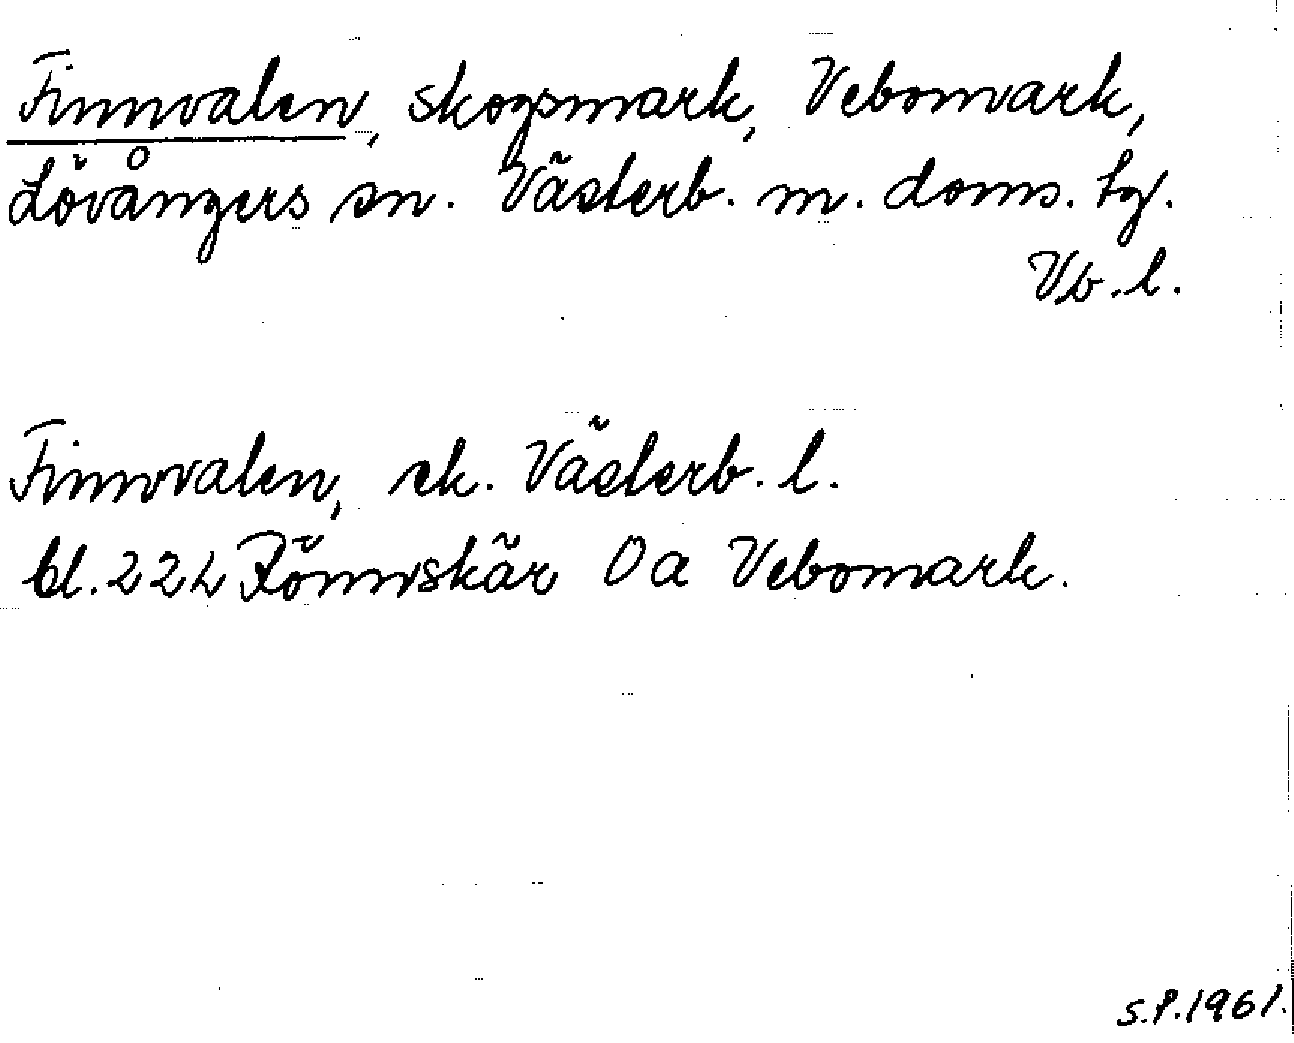 Finnvalen, skogsmark, Vebomark,
Lövångers sn. Västerb. m. doms. tg.
Vb. l.
Finnvalen, sk. Västerb. l.
bl. 222 Rönnskär Oa Vebomark.
S.P. 1961.